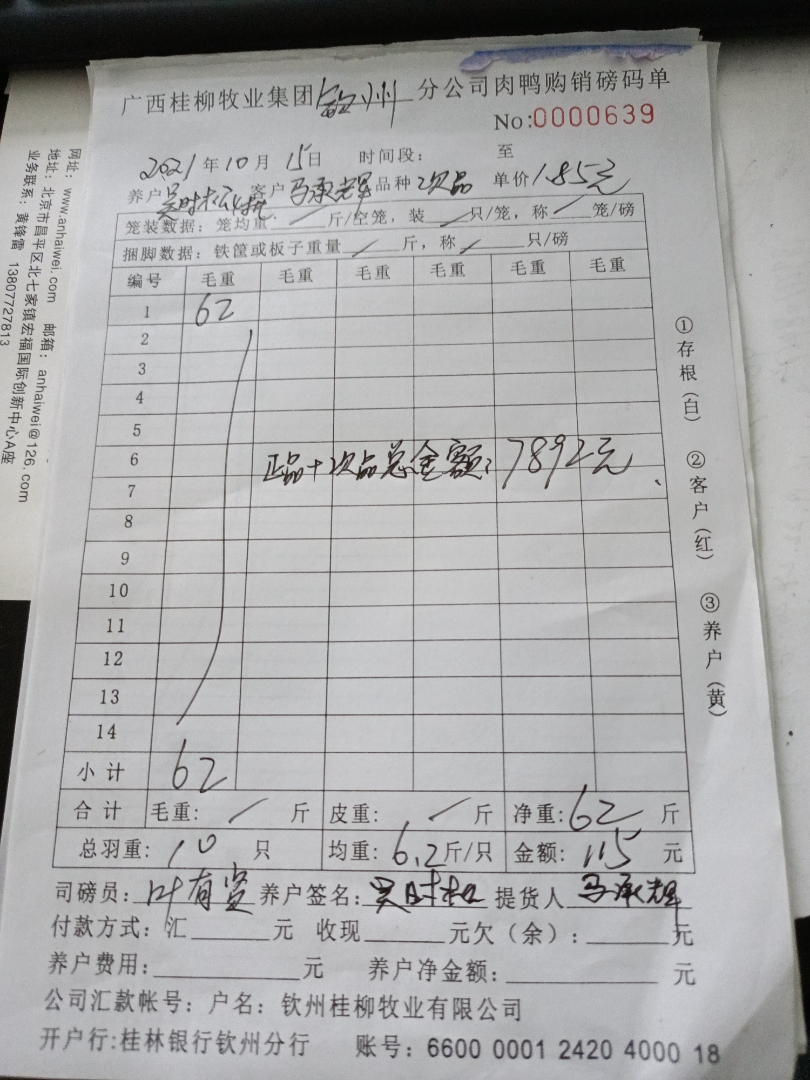 广西桂柳牧业集团钦州分公司肉鸭购销磅码单
No:0000639
2021年10月15日 时间段: 至
养户 客户马承辉品种次品 单价1.85元
笼装数据:笼均重/斤/空笼,装/只/笼,称/笼/磅
捆脚数据:铁筐或板子重量/斤,称/只/磅
编号 毛重 毛重 毛重 毛重 毛重 毛重
1 62
2
3
4
5
6 正品+次品总金额:7892元
7
8
9
10
11
12
13
14
小计 62
合计 毛重:/斤 皮重:/斤 净重:62斤
总羽重:10只 均重:6.2斤/只 金额:115元
司磅员:叶有 养户签名:吴时松 提货人马承辉
付款方式:汇 元 收现 元欠(余): 元
养户费用: 元 养户净金额: 元
公司汇款帐号:户名:钦州桂柳牧业有限公司
开户行:桂林银行钦州分行 账号:6600 0001 2420 4000 18
①存根(白) ②客户(红) ③养户(黄)
网址:www.anhaiwei.com 邮箱:anhaiwei@126.com
地址:北京市昌平区北七家镇宏福国际创新中心A座
业务联系:黄锋雷 13807727813